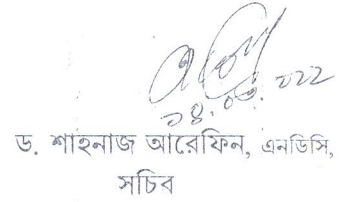 ১৪.০৩.২০২২
ড. শাহনাজ আরেফিন, এনডিসি,
সচিব